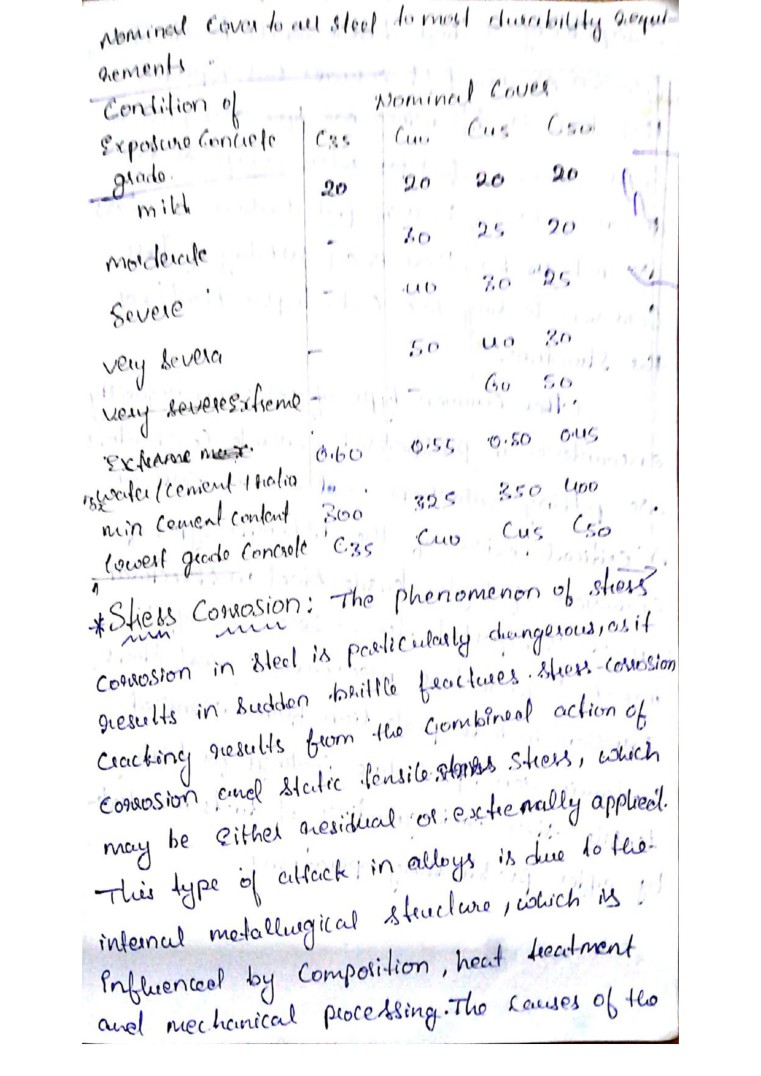 Nominal Cover to all steel to meet durability requi-
rements
Condition of Nominal Cover
Exposure Concrete C35 C40 C45 C50
grade.
mild 20 20 20 20
moderate - 30 25 20
Severe - 40 30 25
very severa - 50 40 30
very severe Extreme - - 60 50
Extreme max. 0.60 0.55 0.50 0.45
water/cement ratio
min cement content 300 325 350 400
lowest grade concrete C35 C40 C45 C50
*Stress Corrosion: The phenomenon of stress
corrosion in steel is particularly dangerous, as it
results in sudden brittle fractures. stress-corrosion
cracking results from the combined action of
corrosion and static tensile stress, which
may be either residual or externally applied.
This type of attack in alloys is due to the
internal metallurgical structure, which is
influenced by composition, heat treatment
and mechanical processing. The causes of the